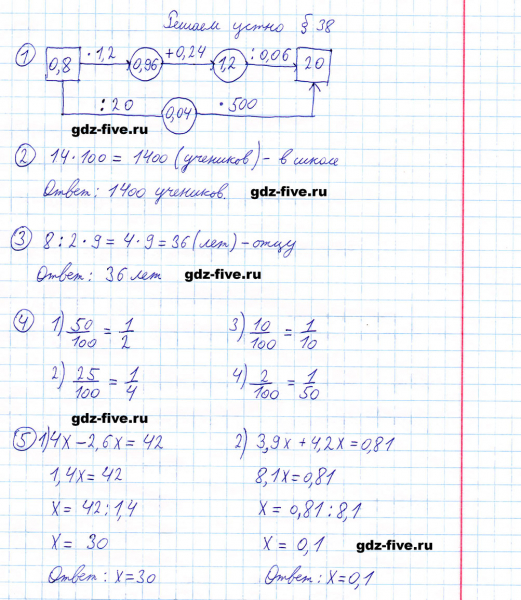 Решаем устно § 38
① 0,8 ·1,2 0,96 +0,24 1,2 :0,06 20
:20 0,04 ·500
gdz-five.ru
② 14·100 = 1400 (учеников) - в школе
Ответ: 1400 учеников. gdz-five.ru
③ 8:2·9 = 4·9 = 36 (лет) - отцу
Ответ: 36 лет gdz-five.ru
④ 1) 50/100 = 1/2 3) 10/100 = 1/10
2) 25/100 = 1/4 4) 2/100 = 1/50
gdz-five.ru
⑤ 1) 4x - 2,6x = 42 2) 3,9x + 4,2x = 0,81
1,4x = 42 8,1x = 0,81
x = 42 : 1,4 x = 0,81 : 8,1
x = 30 x = 0,1 gdz-five.ru
Ответ: x = 30 Ответ: x = 0,1